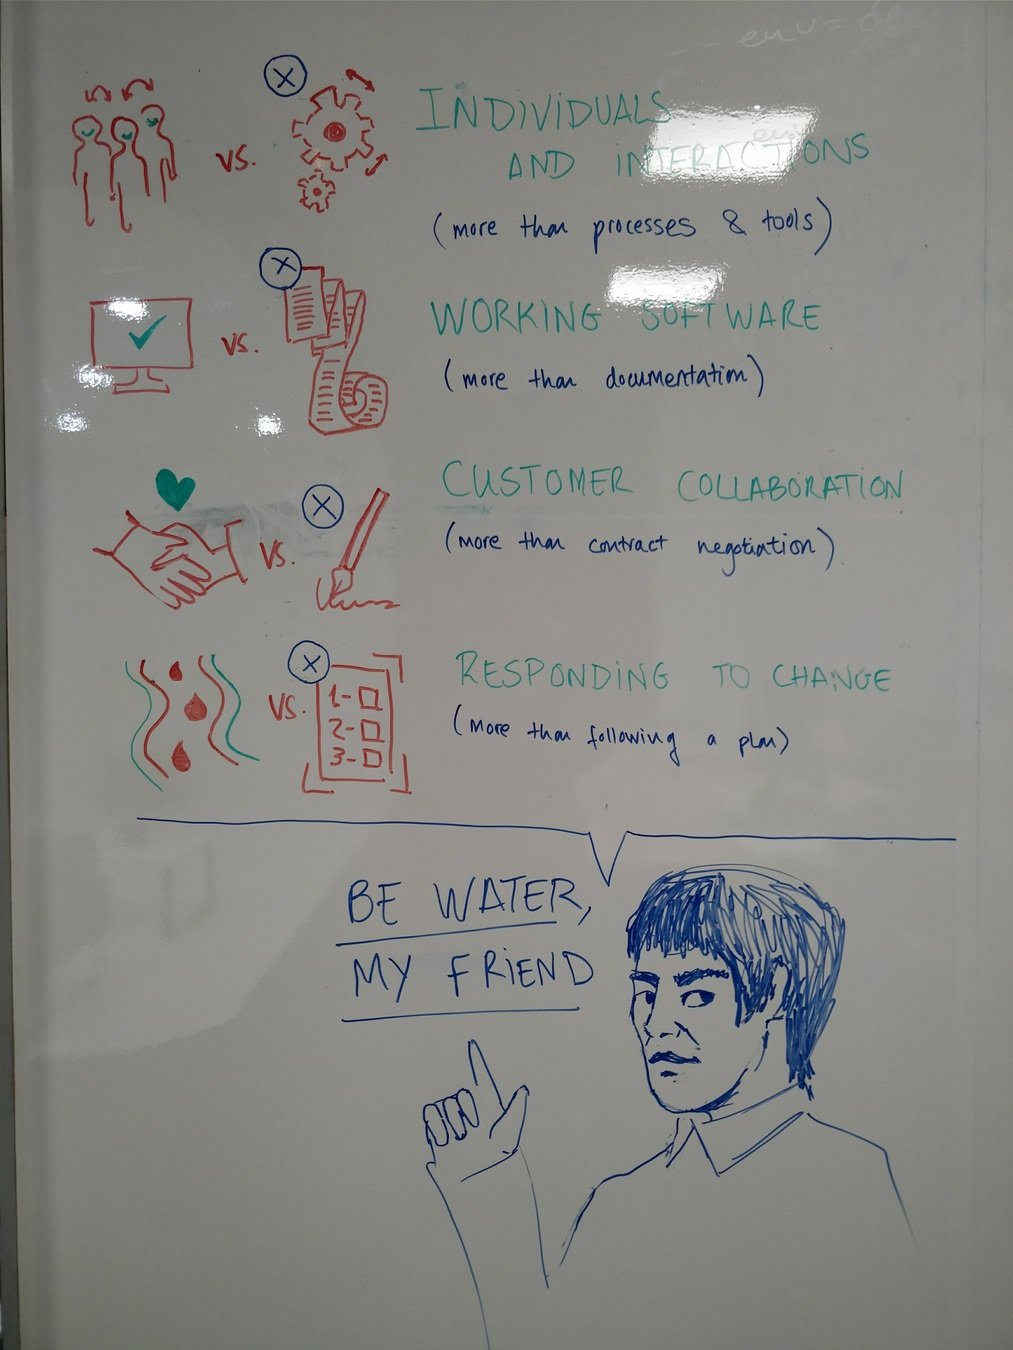 env = de
VS.
INDIVIDUALS
AND INTERACTIONS
(more than processes & tools)
VS.
WORKING SOFTWARE
(more than documentation)
VS.
CUSTOMER COLLABORATION
(more than contract negotiation)
VS.
1-
2-
3-
RESPONDING TO CHANGE
(more than following a plan)
BE WATER,
MY FRIEND